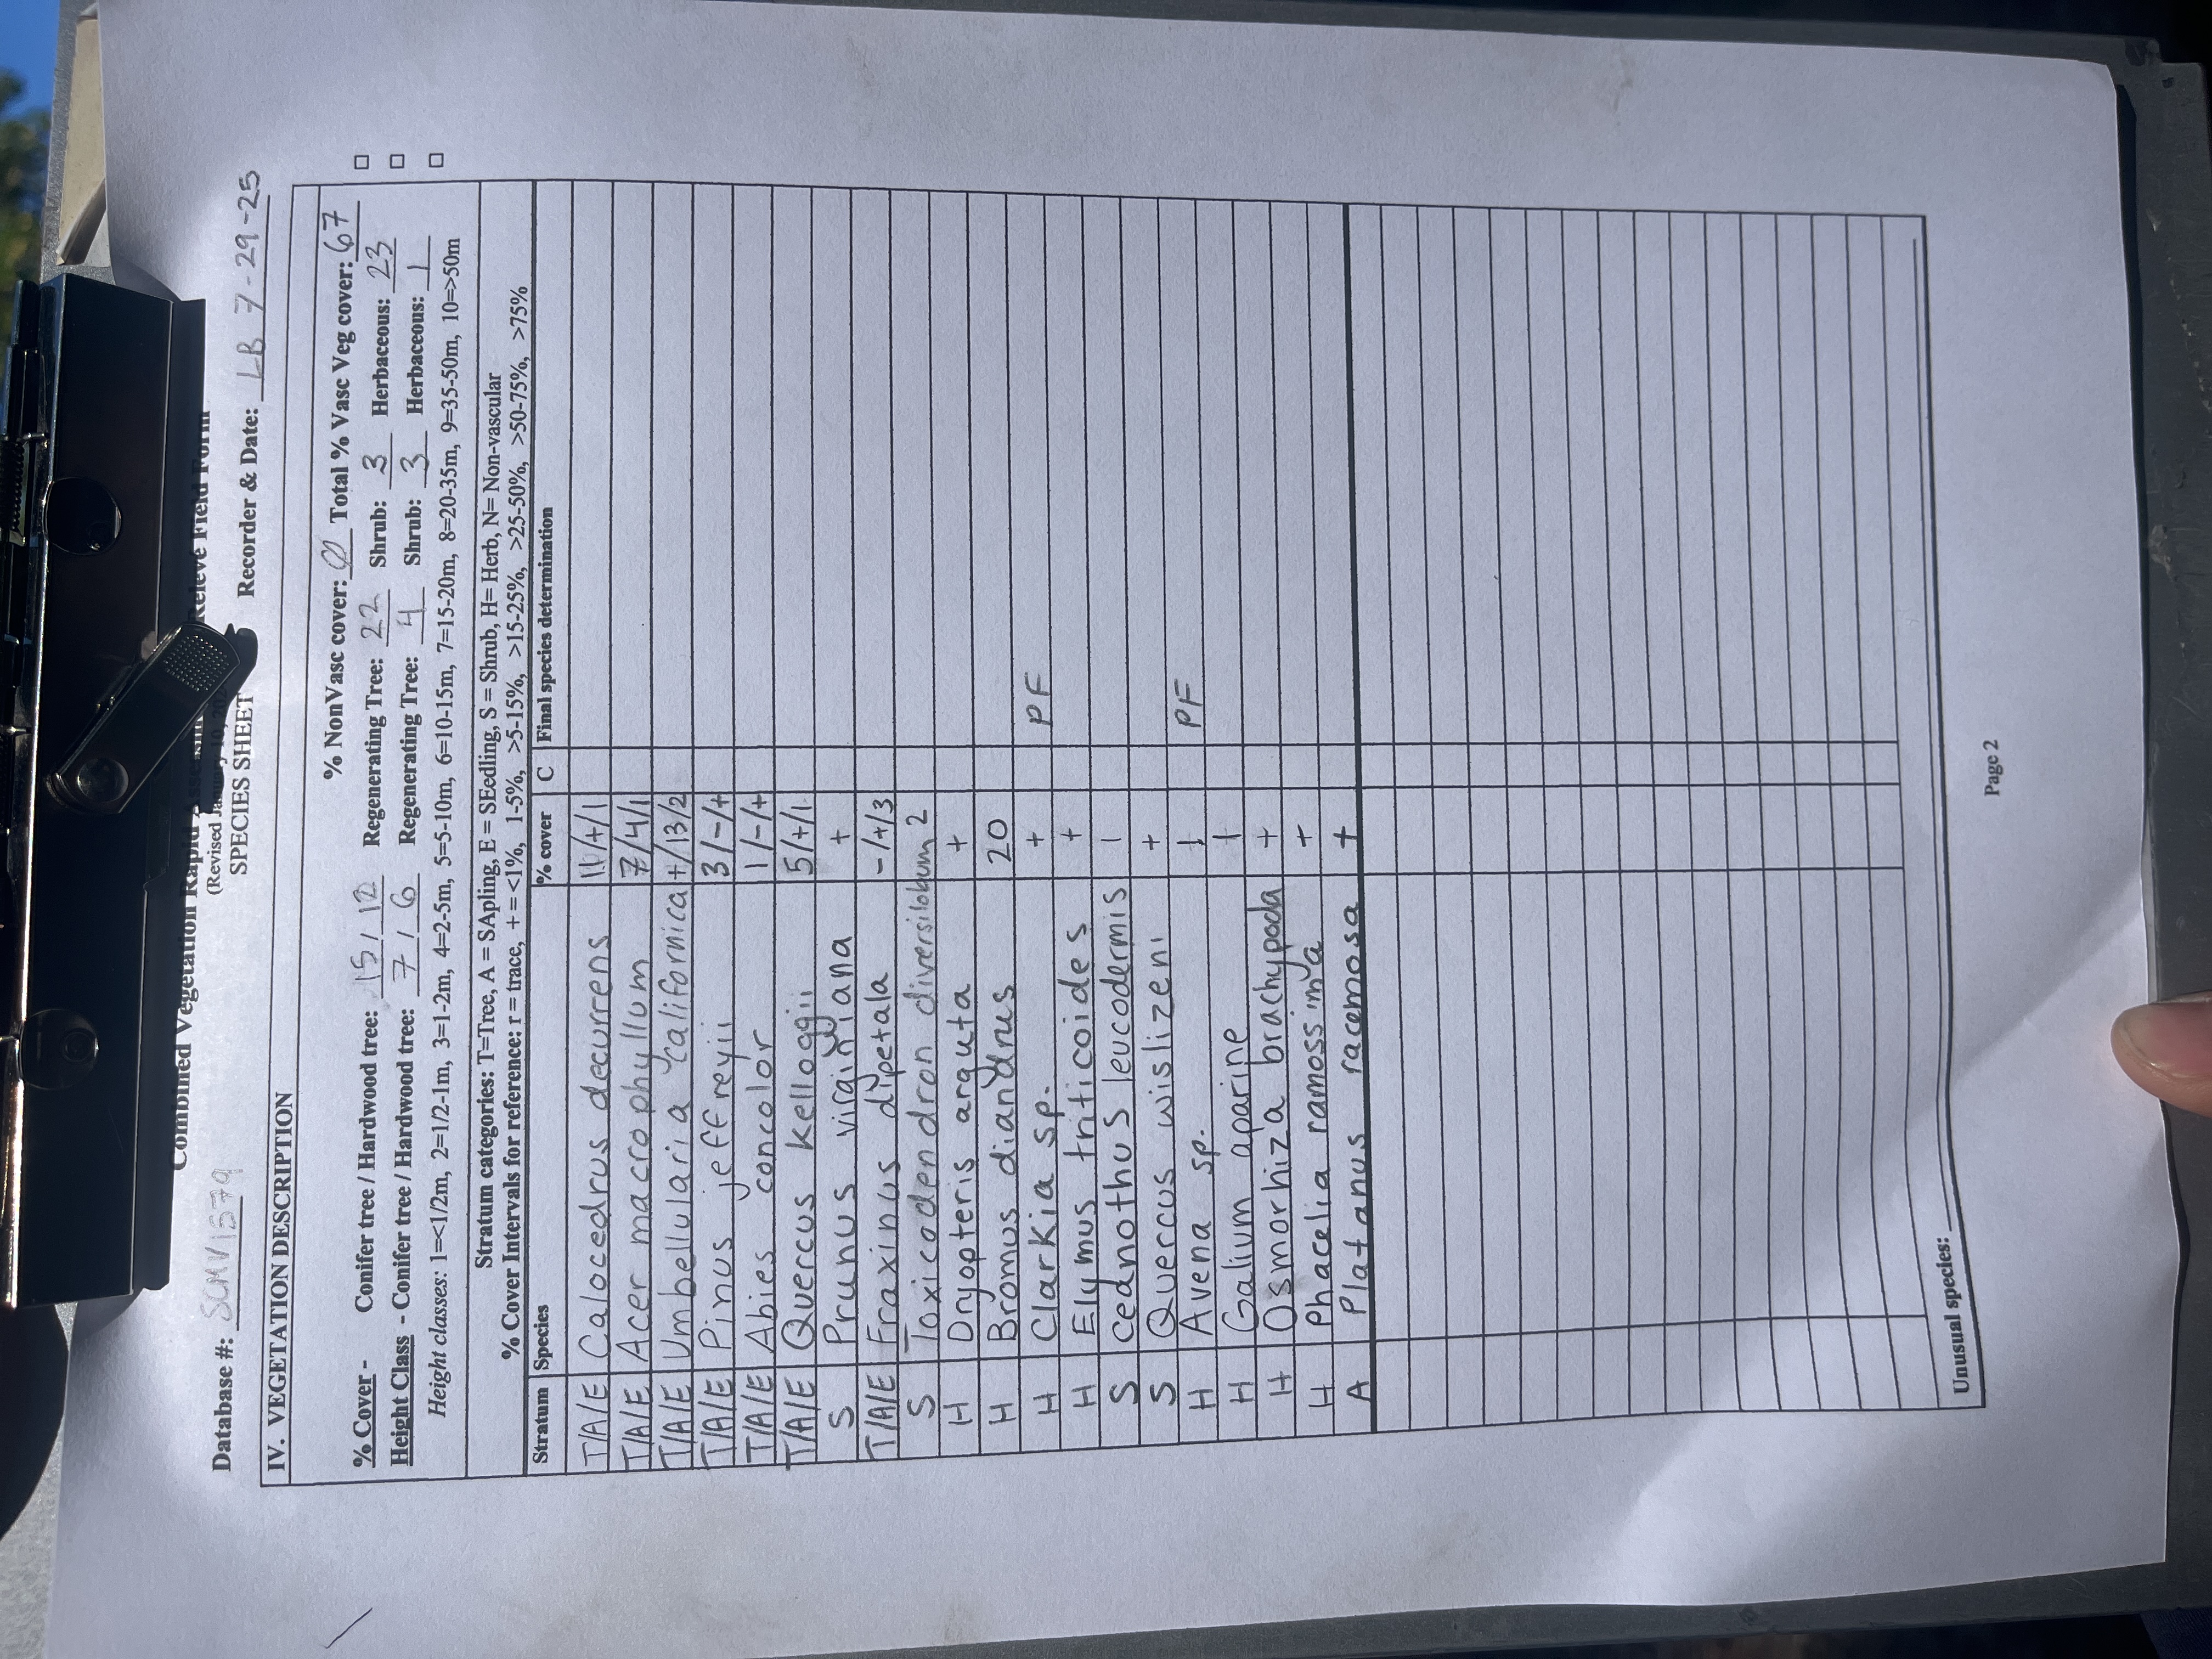 Combined Vegetation Rapid Releve Field Form
(Revised
SPECIES SHEET
Database #: SCMV1579 Recorder & Date: LB 7-29-25
IV. VEGETATION DESCRIPTION
% NonVasc cover: 0 Total % Vasc Veg cover: 67
% Cover - Conifer tree / Hardwood tree: 15 / 12 Regenerating Tree: 22 Shrub: 3 Herbaceous: 23
Height Class - Conifer tree / Hardwood tree: 7 / 6 Regenerating Tree: 4 Shrub: 3 Herbaceous: 1
Height classes: 1=<1/2m, 2=1/2-1m, 3=1-2m, 4=2-5m, 5=5-10m, 6=10-15m, 7=15-20m, 8=20-35m, 9=35-50m, 10=>50m
Stratum categories: T=Tree, A = SApling, E = SEedling, S = Shrub, H= Herb, N= Non-vascular
% Cover Intervals for reference: r = trace, + = <1%, 1-5%, >5-15%, >15-25%, >25-50%, >50-75%, >75%
Stratum Species % cover C Final species determination
T/A/E Calocedrus decurrens 11/+/1
T/A/E Acer macrophyllum 7/4/1
T/A/E Umbellularia californica +/13/2
T/A/E Pinus jeffreyii 3/-/+
T/A/E Abies concolor 1/-/+
T/A/E Quercus Kelloggii 5/+/1
S Prunus virginiana +
T/A/E Fraxinus dipetala -/+/3
S Toxicodendron diversilobum 2
H Dryopteris arguta +
H Bromus diandrus 20
H Clarkia sp. + PF
H Elymus triticoides +
S ceanothus leucodermis 1
S Quercus wislizeni +
H Avena sp. 1 PF
H Galium aparine 1
H Osmorhiza brachypoda +
H Phacelia ramosissima +
A Platanus racemosa +
Unusual species:
Page 2